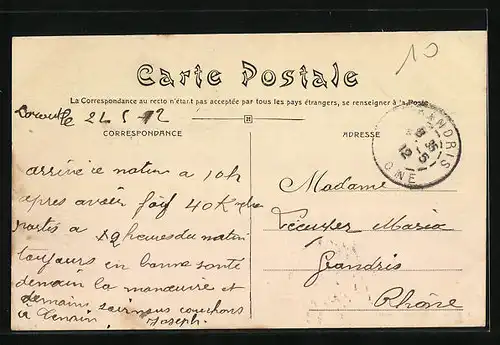 10
Carte Postale
La Correspondance au recto n'étant pas acceptée par tous les pays étrangers, se renseigner à la Poste
le 24 5 12
CORRESPONDANCE
ADRESSE
GRANDRIS
5 -5 12
arrivé ce matin a 10h
apres avoir fait 40 K
partis a 2 heures du matin
toujours en bonne santé
demain la manœuvre et
demain soir nous couchons
à
Joseph.
Madame
Maria
Grandris
Rhône